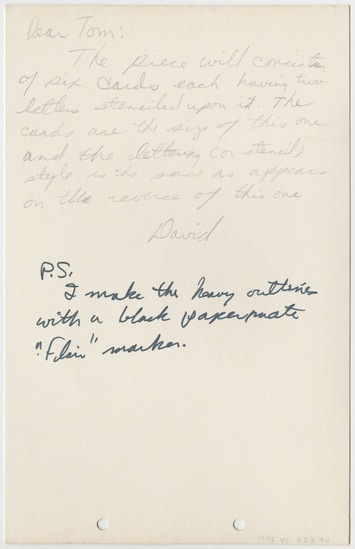 Dear Tom:
The piece will consist
of six cards each having two
letters stenciled upon it. The
cards are the size of this one
and the lettering (or stencil)
style is the same as appears
on the reverse of this one
David
P.S.
I make the heavy outlines
with a black papermate
"Flair" marker.
1995.46 429.94